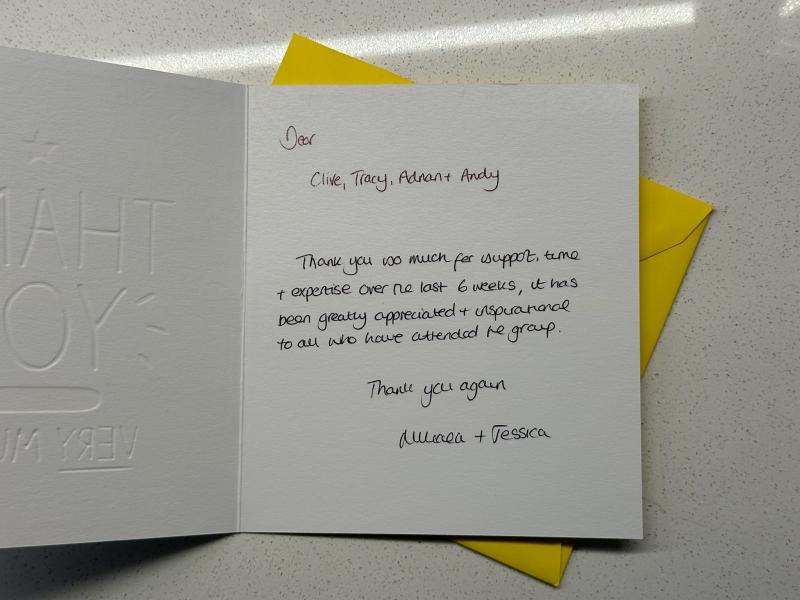 THAN
YO
VERY MU
Dear
Clive, Tracy, Adnan + Andy
Thank you so much for support, time
+ expertise over the last 6 weeks, it has
been greatly appreciated + inspirational
to all who have attended the group.
Thank you again
+ Jessica